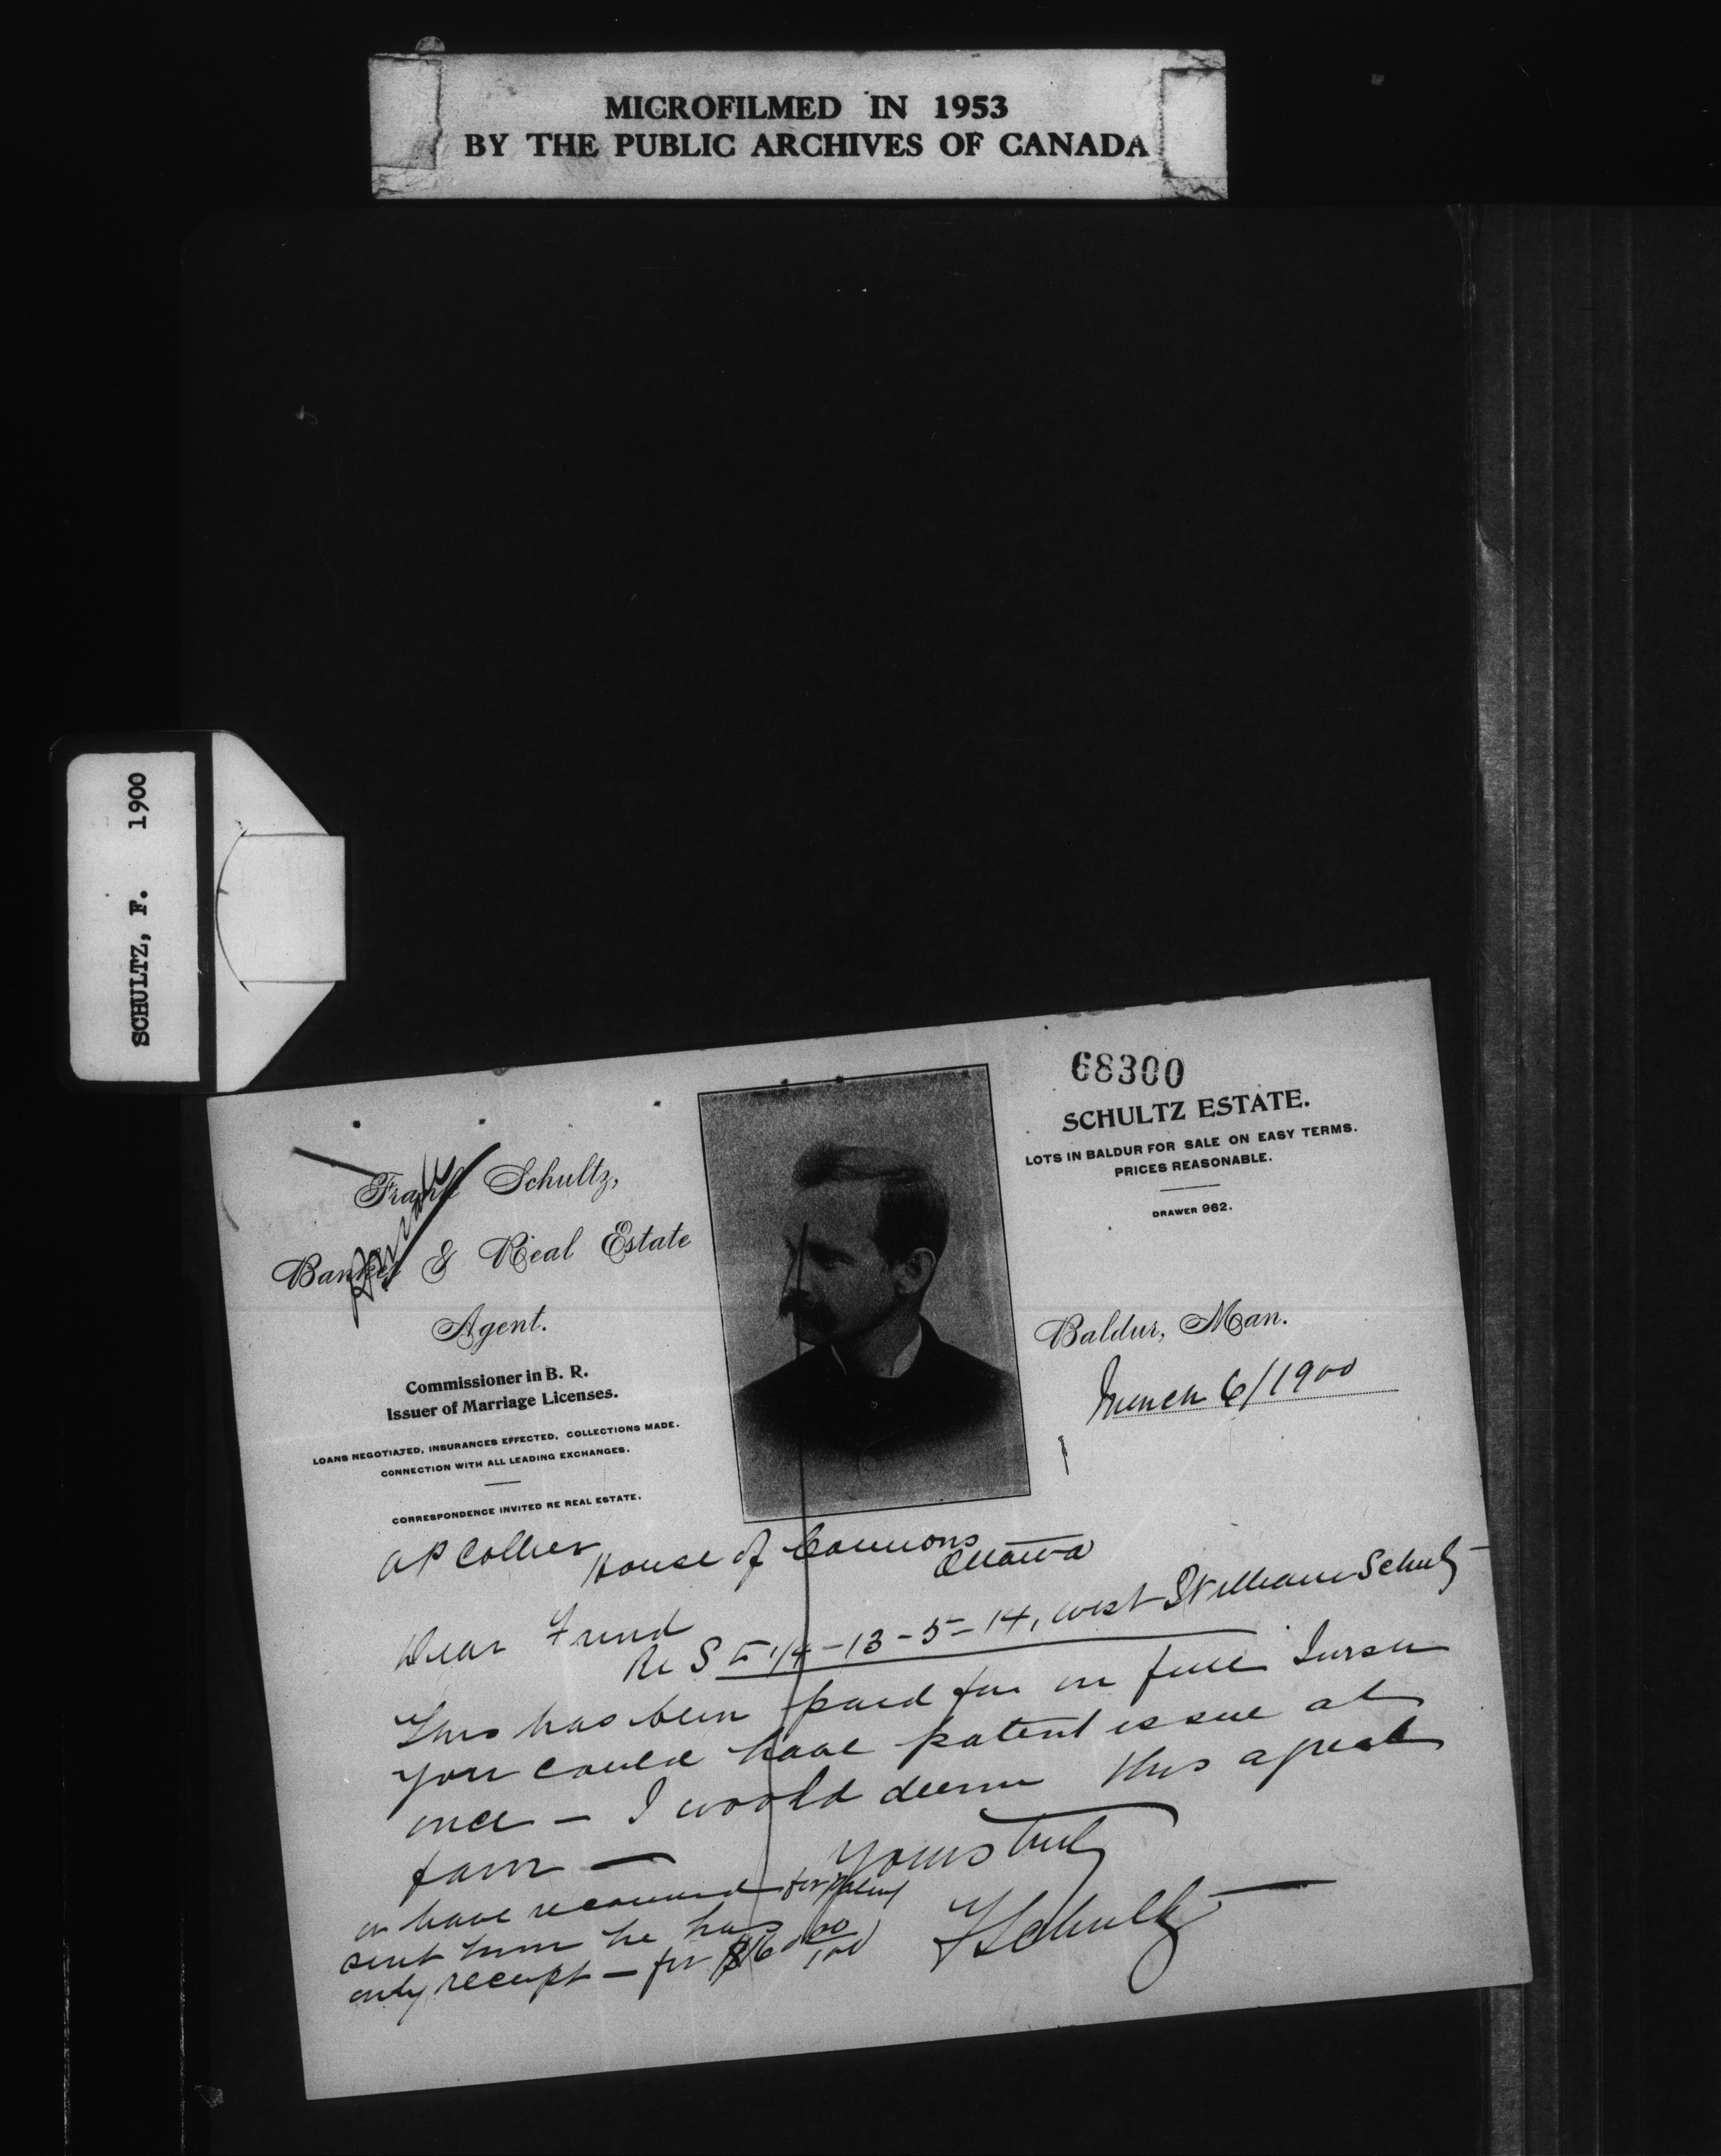 MICROFILMED IN 1953
BY THE PUBLIC ARCHIVES OF CANADA
SCHULTZ, F. 1900
68300
Frank Schultz,
Banker & Real Estate
Agent.
Commissioner in B. R.
Issuer of Marriage Licenses.
LOANS NEGOTIATED, INSURANCES EFFECTED, COLLECTIONS MADE.
CONNECTION WITH ALL LEADING EXCHANGES.
CORRESPONDENCE INVITED RE REAL ESTATE.
SCHULTZ ESTATE.
LOTS IN BALDUR FOR SALE ON EASY TERMS.
PRICES REASONABLE.
DRAWER 962.
Baldur, Man.
March 6/1900
A P Collier
House of Commons
Ottawa
Dear Friend
Re S E 1/4-13-5-14, West William Schultz
This has been paid for in full
you could have patent issue at
once - I would deem this a great
favor -
Yours truly
F Schultz
or have recommend for Patent
sent him he has
only receipt - for $160 00/100